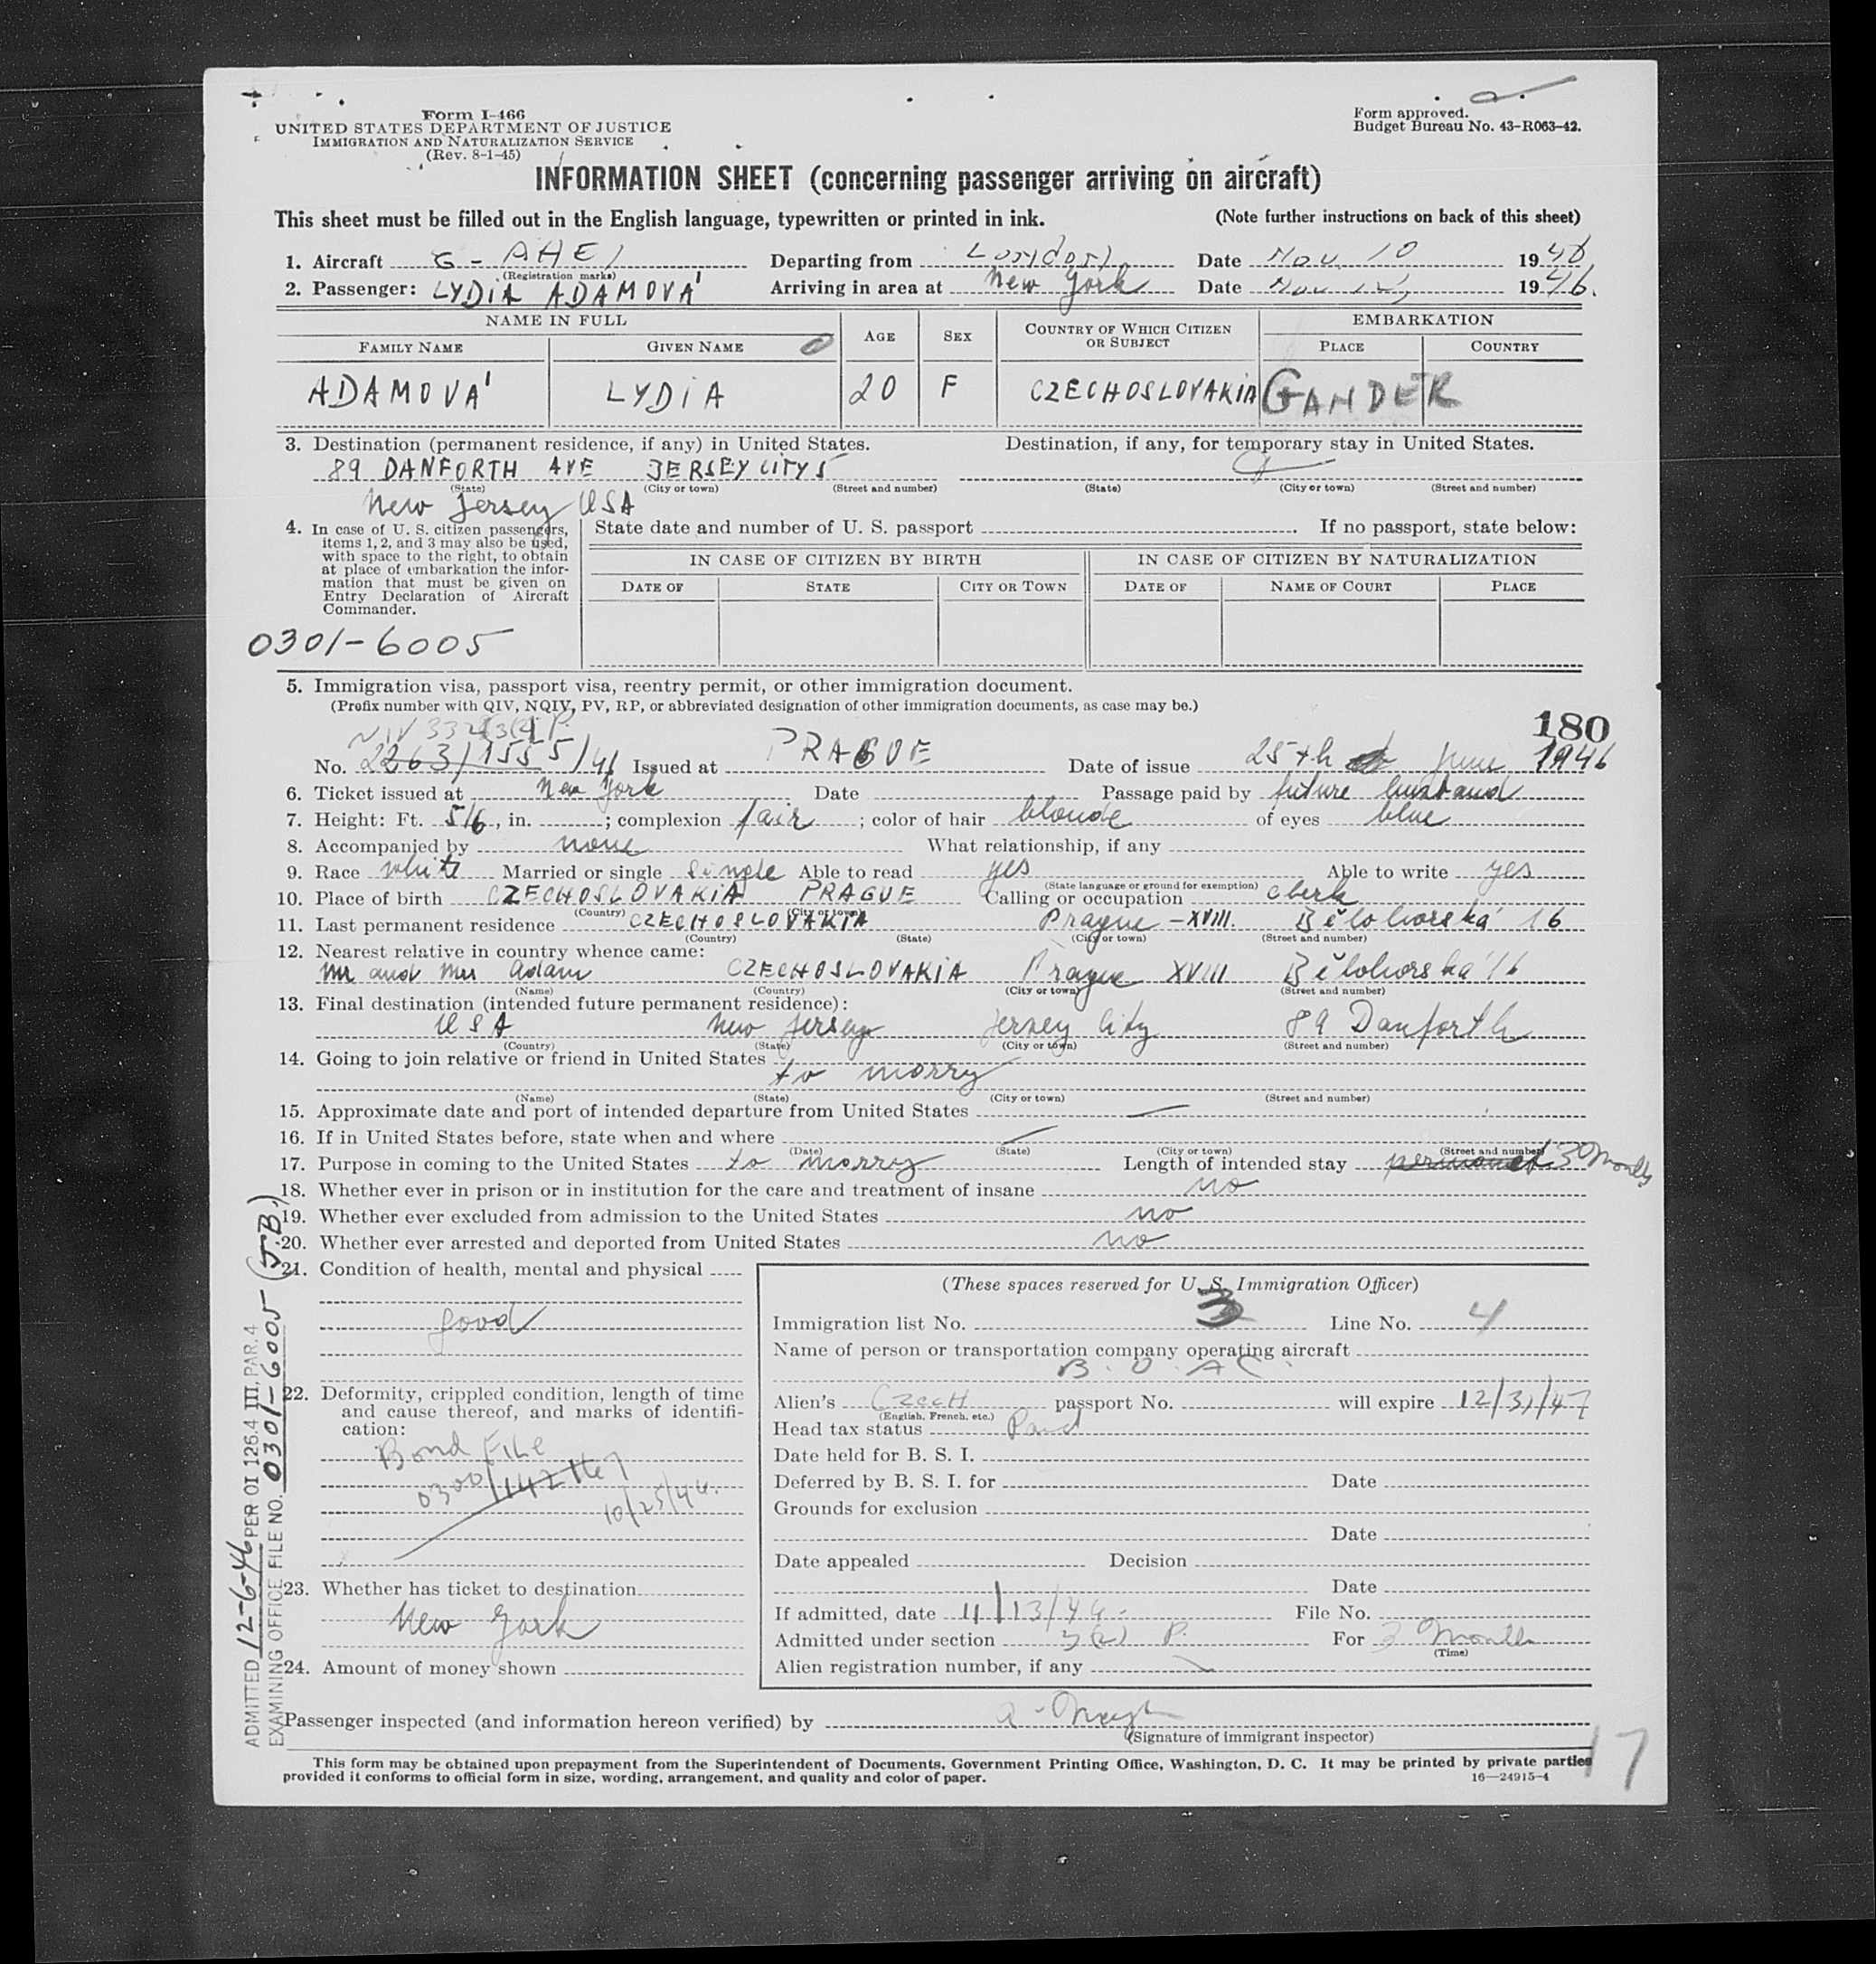 Form I-466
UNITED STATES DEPARTMENT OF JUSTICE
IMMIGRATION AND NATURALIZATION SERVICE
(Rev. 8-1-45)
Form approved.
Budget Bureau No. 43-R063-42.
INFORMATION SHEET (concerning passenger arriving on aircraft)
This sheet must be filled out in the English language, typewritten or printed in ink. (Note further instructions on back of this sheet)
1. Aircraft G-AHEJ Departing from London Date Nov. 10 1946
(Registration marks)
2. Passenger: LYDIA ADAMOVÁ Arriving in area at New York Date Nov 1946.
NAME IN FULL AGE SEX COUNTRY OF WHICH CITIZEN OR SUBJECT EMBARKATION
FAMILY NAME GIVEN NAME PLACE COUNTRY
ADAMOVÁ LYDIA 20 F CZECHOSLOVAKIA GANDER
3. Destination (permanent residence, if any) in United States. Destination, if any, for temporary stay in United States.
89 DANFORTH AVE JERSEY CITY 5
(State) (City or town) (Street and number) (State) (City or town) (Street and number)
New Jersey USA
4. In case of U. S. citizen passengers, items 1, 2, and 3 may also be used, with space to the right, to obtain at place of embarkation the information that must be given on Entry Declaration of Aircraft Commander.
State date and number of U. S. passport If no passport, state below:
IN CASE OF CITIZEN BY BIRTH IN CASE OF CITIZEN BY NATURALIZATION
DATE OF STATE CITY OR TOWN DATE OF NAME OF COURT PLACE
0301-6005
5. Immigration visa, passport visa, reentry permit, or other immigration document.
(Prefix number with QIV, NQIV, PV, RP, or abbreviated designation of other immigration documents, as case may be.)
180
No. 2263/1555/46 Issued at PRAGUE Date of issue 25th June 1946
6. Ticket issued at New York Date Passage paid by future husband
7. Height: Ft. 5/6, in. ; complexion fair ; color of hair blonde of eyes blue
8. Accompanied by none What relationship, if any
9. Race white Married or single single Able to read yes Able to write yes
(State language or ground for exemption)
10. Place of birth CZECHOSLOVAKIA PRAGUE Calling or occupation clerk
(Country) (City or town)
11. Last permanent residence CZECHOSLOVAKIA Prague-XVIII. Bělohorská 16
(Country) (State) (City or town) (Street and number)
12. Nearest relative in country whence came:
Mr and Mrs Adam CZECHOSLOVAKIA Prague XVIII Bělohorská 16
(Name) (Country) (City or town) (Street and number)
13. Final destination (intended future permanent residence):
USA New Jersey Jersey City 89 Danforth
(Country) (State) (City or town) (Street and number)
14. Going to join relative or friend in United States
to marry
(Name) (State) (City or town) (Street and number)
15. Approximate date and port of intended departure from United States
16. If in United States before, state when and where
(Date) (State) (City or town) (Street and number)
17. Purpose in coming to the United States to marry Length of intended stay permanent 3 Months
18. Whether ever in prison or in institution for the care and treatment of insane no
19. Whether ever excluded from admission to the United States no
20. Whether ever arrested and deported from United States no
21. Condition of health, mental and physical
good
22. Deformity, crippled condition, length of time and cause thereof, and marks of identification:
Bond File
0300/
10/25/46.
23. Whether has ticket to destination
New York
24. Amount of money shown
(These spaces reserved for U. S. Immigration Officer)
Immigration list No. 3 Line No. 4
Name of person or transportation company operating aircraft
B.O.A.C.
Alien's Czech passport No. will expire 12/31/47
(English, French, etc.)
Head tax status Paid
Date held for B. S. I.
Deferred by B. S. I. for Date
Grounds for exclusion
Date
Date appealed Decision
Date
If admitted, date 11/13/46 File No.
Admitted under section 3(2) P. For 3 Months
(Time)
Alien registration number, if any
Passenger inspected (and information hereon verified) by
(Signature of immigrant inspector)
This form may be obtained upon prepayment from the Superintendent of Documents, Government Printing Office, Washington, D. C. It may be printed by private parties
provided it conforms to official form in size, wording, arrangement, and quality and color of paper. 16—24915-4
17
ADMITTED 12-6-46 PER OI 126.4 III, PAR. 4
EXAMINING OFFICE FILE NO. 0301-6005 (J.B.)